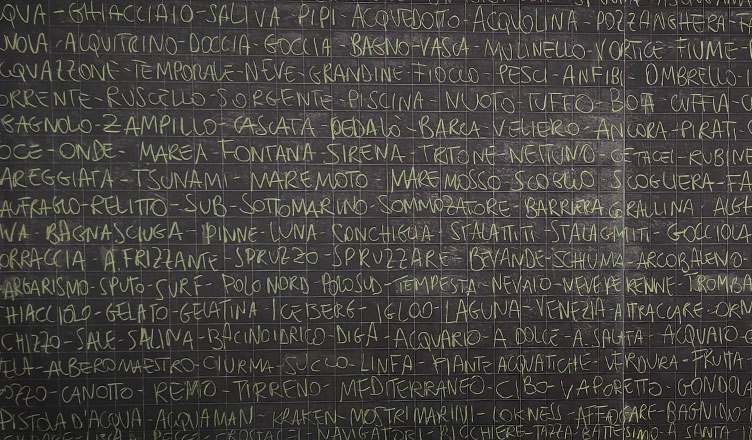 QUA - GHIACCIAIO - SALIVA - PIPI - ACQUEDOTTO - ACQUOLINA - POZZANGHERA - F
NOLA - ACQUITRINO - DOCCIA - GOCCIA - BAGNO - VASCA - MULINELLO - VORTICE - FIUME -
CQUAZZONE - TEMPORALE - NEVE - GRANDINE - FIOCCO - PESCI - ANFIBI - OMBRELLO -
ORRENTE - RUSCELLO - SORGENTE - PISCINA - NUOTO - TUFFO - BOA - CUFFIA -
GAGNOLO - ZAMPILLO - CASCATA PEDALÒ - BARCA VELIERO - ANCORA - PIRATI -
OCE - ONDE - MAREA FONTANA - SIRENA - TRITONE - NETTUNO - CETACEI - RUBINE
AREGGIATA - TSUNAMI MAREMOTO MAREMOSSO - SCOGLIO SCOGLIERA - FA
AUFRAGIO - RELITTO - SUB - SOTTOMARINO - SOMMOZZATORE - BARRIERA GRALLINA ALGA
VA BAGNASCIUGA - PINNE - LUNA CONCHIGLIA - STALATTITI - STALAGMITI - GOCCIOLA
ORRACCIA A FRIZZANTE - SPRUZZO - SPRUZZARE - BEVANDE - SCHIUMA - ARCOBALENO -
ARGARISMO - SPUTO - SURF - POLO NORD POLO SUD - TEMPESTA - NEVAIO - NEVE PERENNE - TROMBA
HIACCIOLO - GELATO - GELATINA ICEBERG - IGLOO - LAGUNA - VENEZIA ATTRACCARE - ORM
CHIZZO - SALE - SALINA - BACINO IDRICO DIGA - ACQUARIO - A DOLCE - A SALATA ACQUAIO -
ELA - ALBERO MAESTRO - CIURMA - SUCCO - LINFA - PIANTE ACQUATICHE - VERDURA - FRUTTA
OZZO - CANOTTO - REMO - TIRRENO - MEDITERRANEO - CIBO - VAPORETTO - GONDOLA
PISTOLA D'ACQUA - ACQUAMAN - KRAKEN - MOSTRI MARINI - LOKNESS - AFFOGARE - BAGNINO -
NAVIGATORI BICCHIERE - TAZZA BATTESIMO - A SANTA -